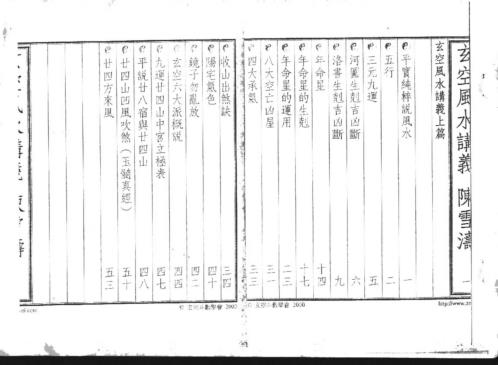 玄空風水講義 陳雪濤 一
玄空風水講義上篇
平實純粹說風水 一
五行 二
三元九運 五
河圖生剋吉凶斷 六
洛書生剋吉凶斷 九
年命星 十四
年命星的生剋 十七
年命星的運用 二三
八大空亡凶星 三一
四大承氣 三三
© 玄空斗數學會 2000
收山出煞訣 三四
陽宅氣色 四十
鏡子勿亂放 四二
玄空六大派概說 四四
九運廿四山中宮立極表 四七
平說廿八宿與廿四山 四八
廿四山凹風吹煞(玉髓真經) 五十
廿四方來風 五三
© 玄空斗數學會 2000